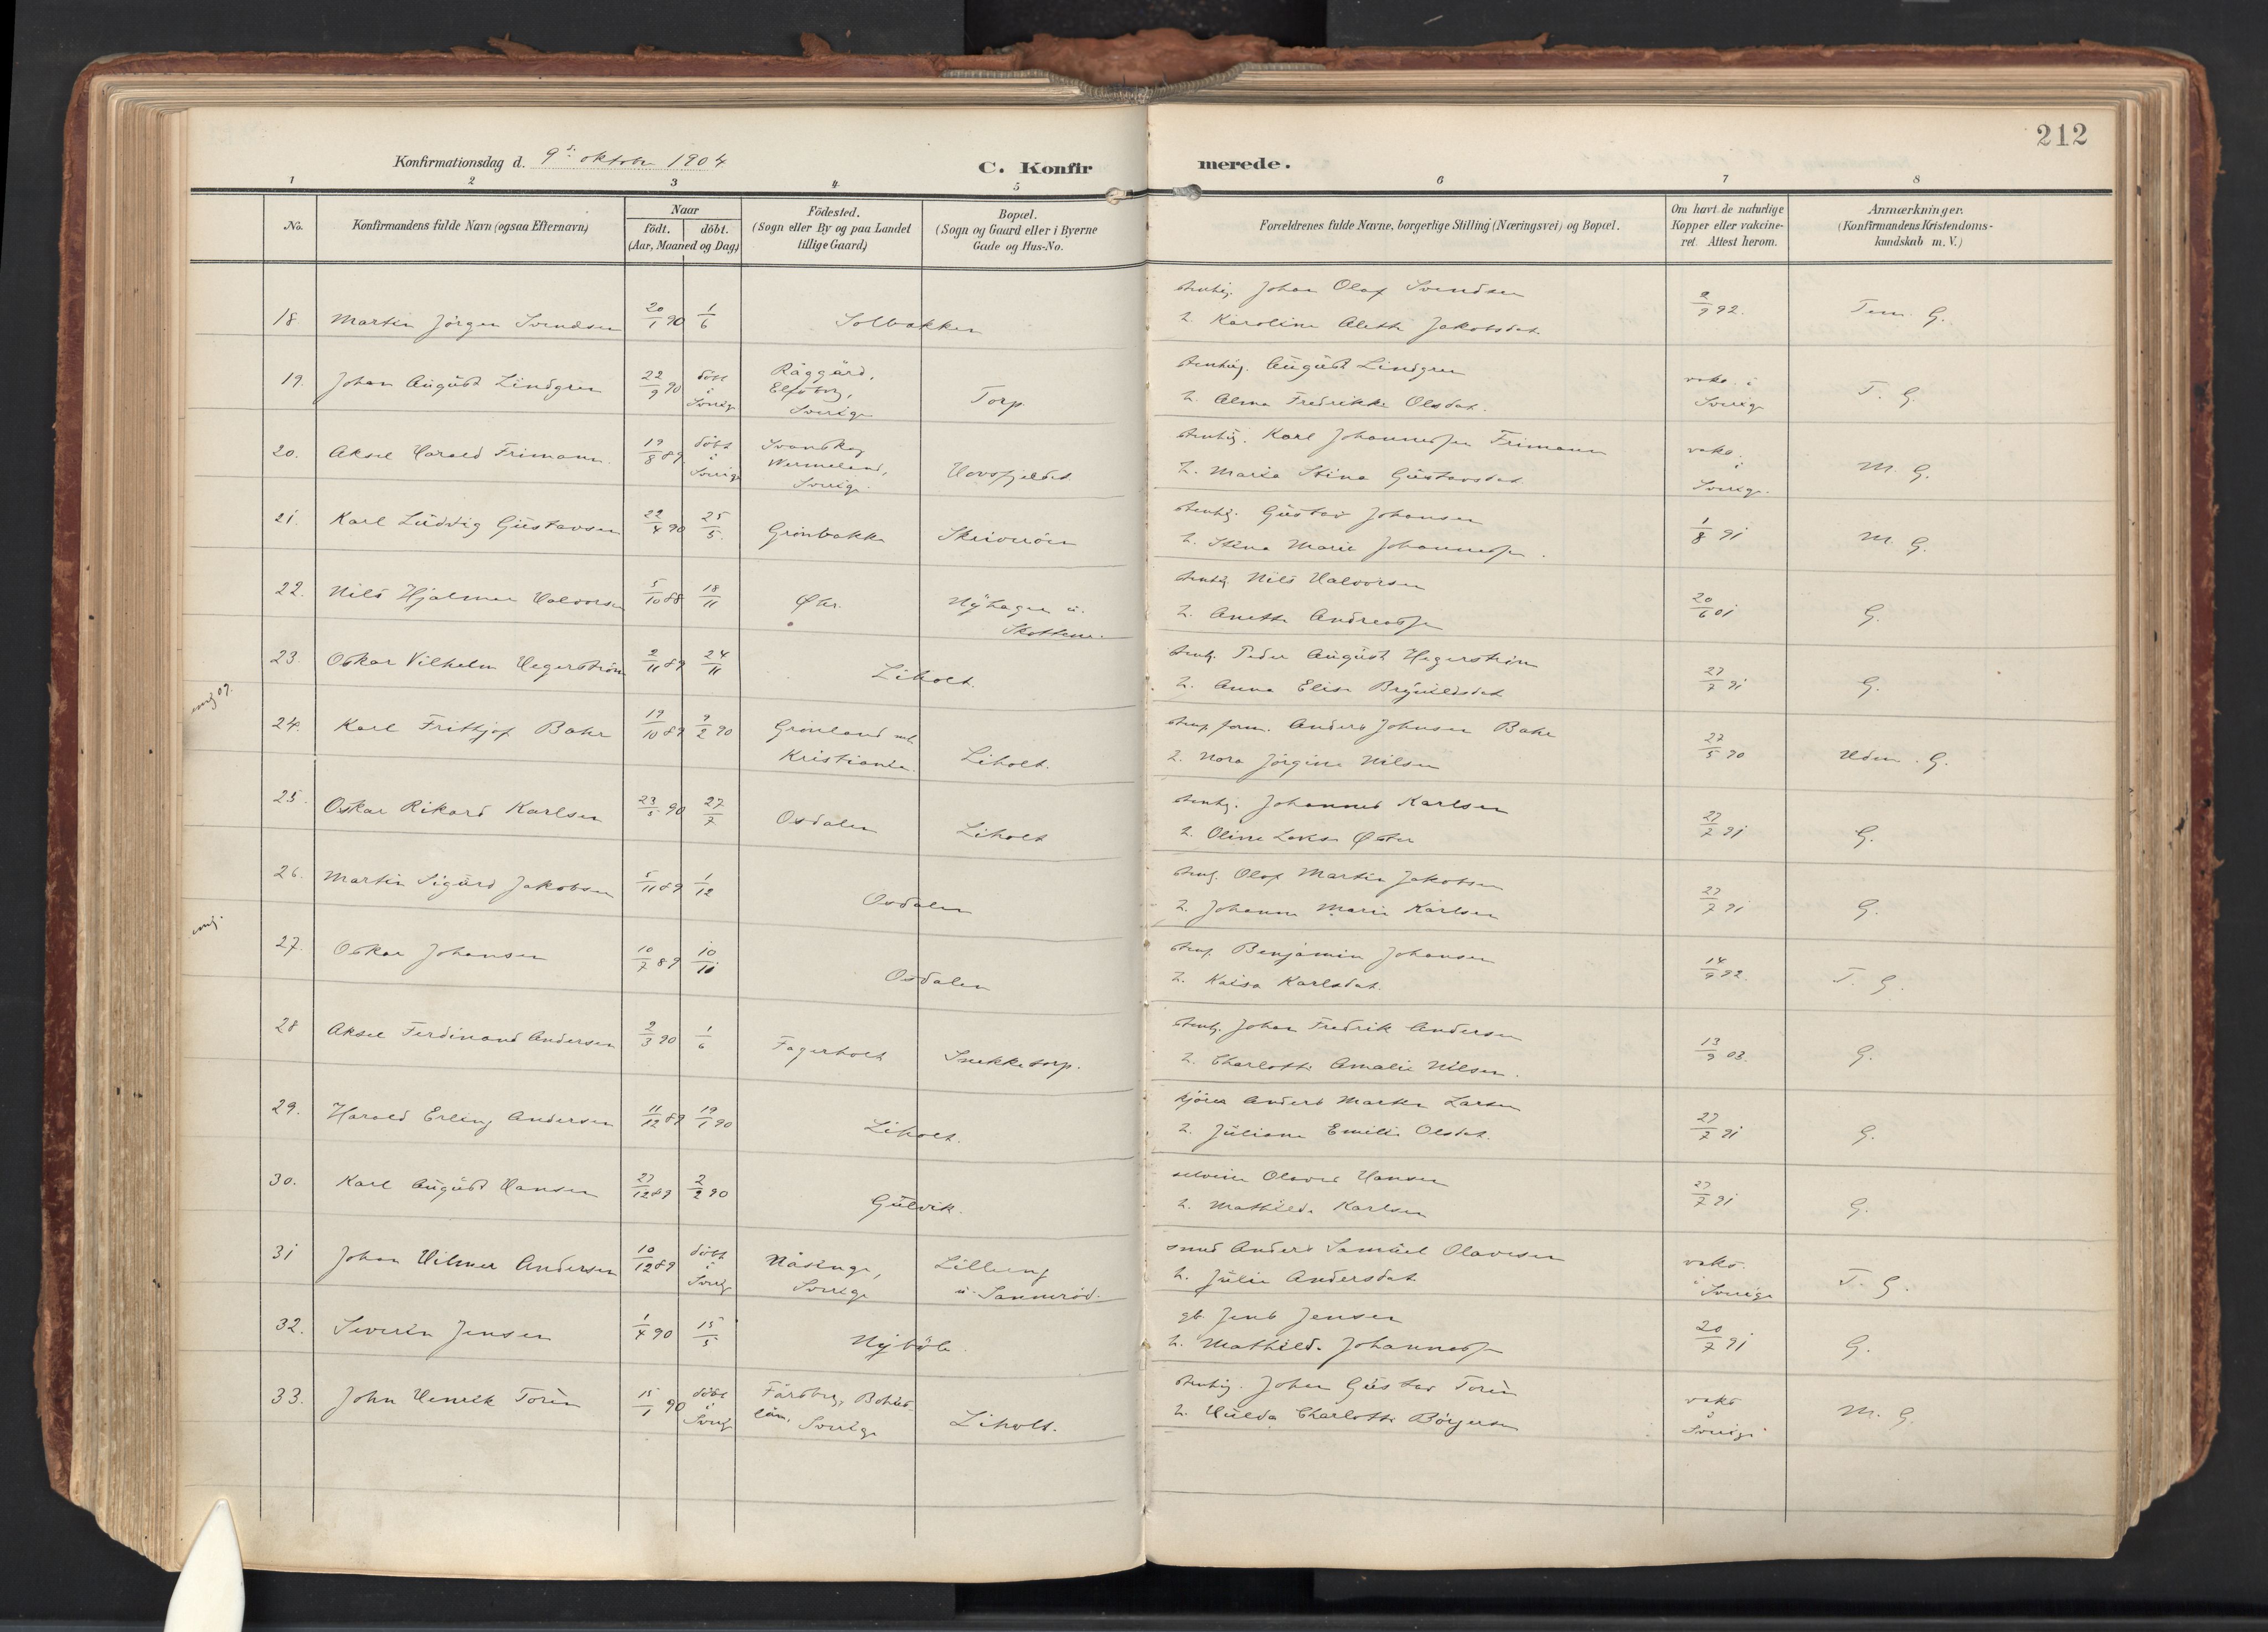 212
Konfirmationsdag d. 9de oktober 1904
C. Konfirmerede.
1 2 3 4 5 6 7 8
No.
Konfirmandens fulde Navn (ogsaa Efternavn)
Naar
födt. döbt.
(Aar, Maaned og Dag)
Födested.
(Sogn eller By og paa Landet
tillige Gaard)
Bopæl.
(Sogn og Gaard eller i Byerne
Gade og Hus-No.
Forældrenes fulde Navne, borgerlige Stilling (Næringsvei) og Bopæl.
Om havt de naturlige
Kopper eller vakcine-
ret. Attest herom.
Anmærkninger.
(Konfirmandens Kristendoms-
kundskab m. V.)
18. Martin Jörgen Svendsen 20/1 90 1/6 Solbakken
stenhug. Johan Olaf Svendsen
h. Karoline Alette Jakobsdat.
2/9 92. Tem. G.
19. Johan August Lindgren 22/9 90 döbt i Sverige
Råggård, Elfsborg, Sverige
Torp.
stenhug. August Lindgren
h. Alma Fredrikke Olsdat.
vaks. i Sverige
T. G.
20. Aksel Harald Frimann 19/8 89 döbt i Sverige
Svanskog Wermeland, Sverige.
Hovsfjeldet.
stenhug. Karl Johannessen Frimann
h. Maria Stina Gustavsdat.
vaks. i Sverige.
M. G.
21. Karl Ludvig Gustavsen 22/4 90 25/5. Grönbakke
stenhg. Gustav Johansen
h. Stina Marie Johannessen.
1/8 91 M. G.
22. Nils Hjalmar Halvorsen 5/10 88 18/11
Nyhagen u.
Skottene.
stenhg. Nils Halvorsen
h. Anette Andreassen
20/6 01 G.
23. Oskar Vilhelm Hegerström 2/11 89 24/11 Liholt.
stenh. Peder August Hegerström
h. Anna Elise Brynildsdat
27/7 91 G.
24. Karl Frithjof Bakr 19/10 89 9/2 90
Grönland
Kristiania. Liholt.
form. Anders Johnsen Bakr
h. Nora Jörgine Nilsen
27/5 90 Uden. G.
25. Oskar Rikard Karlsen 23/5 90 27/7 Osdalen Liholt
stenhg. Johannes Karlsen
h. Oline
27/7 91 G.
26. Martin Sigurd Jakobsen 5/11 89 1/12 Osdalen
stenh. Olof Martin Jakobsen
h. Johanne Marie Karlsen
27/7 91 G.
27. Oskar Johansen 10/7 89 10/11 Osdalen
Benjamin Johansen
h. Kaisa Karlsdat.
14/9 92. T. G.
28 Aksel Ferdinand Andersen 2/3 90 1/6 Fagerholt Snekketorp.
stenh. Johan Fredrik Andersen
h. Charlotte Amalie Nilsen.
13/9 03. G.
29. Harald Erling Andersen 11/12 89 19/1 90 Liholt.
kjörer Anders Martin Larsen
h. Juliane Emilie Olsdat.
27/7 91 G.
30. Karl August Hansen 27/12 89 2/2 90 Gulvik.
selveier Olaves Hansen
h. Mathilde Karlsen
27/7 91 G.
31 Johan Hilmer Andersen 10/12 89 döbt i Sverig
Näsinge, Sverige
u. Sannerød.
smed Anders Samuel Olavesen
h. Julie Andersdat.
vaks. i Sverige
T. G.
32. Severin Jensen 1/4 90 15/5 Nyböle.
gb. Jens Jensen
h. Mathilde Johannessen
20/7 91 G.
33. John Henrik Torèn 15/1 90 döbt i Sverig
Bohus-
län, Sverige
Liholt.
stenhug. Johan Gustav Torèn
h. Hulda Charlotte Börjesen
vaks i Sverige
M. G.